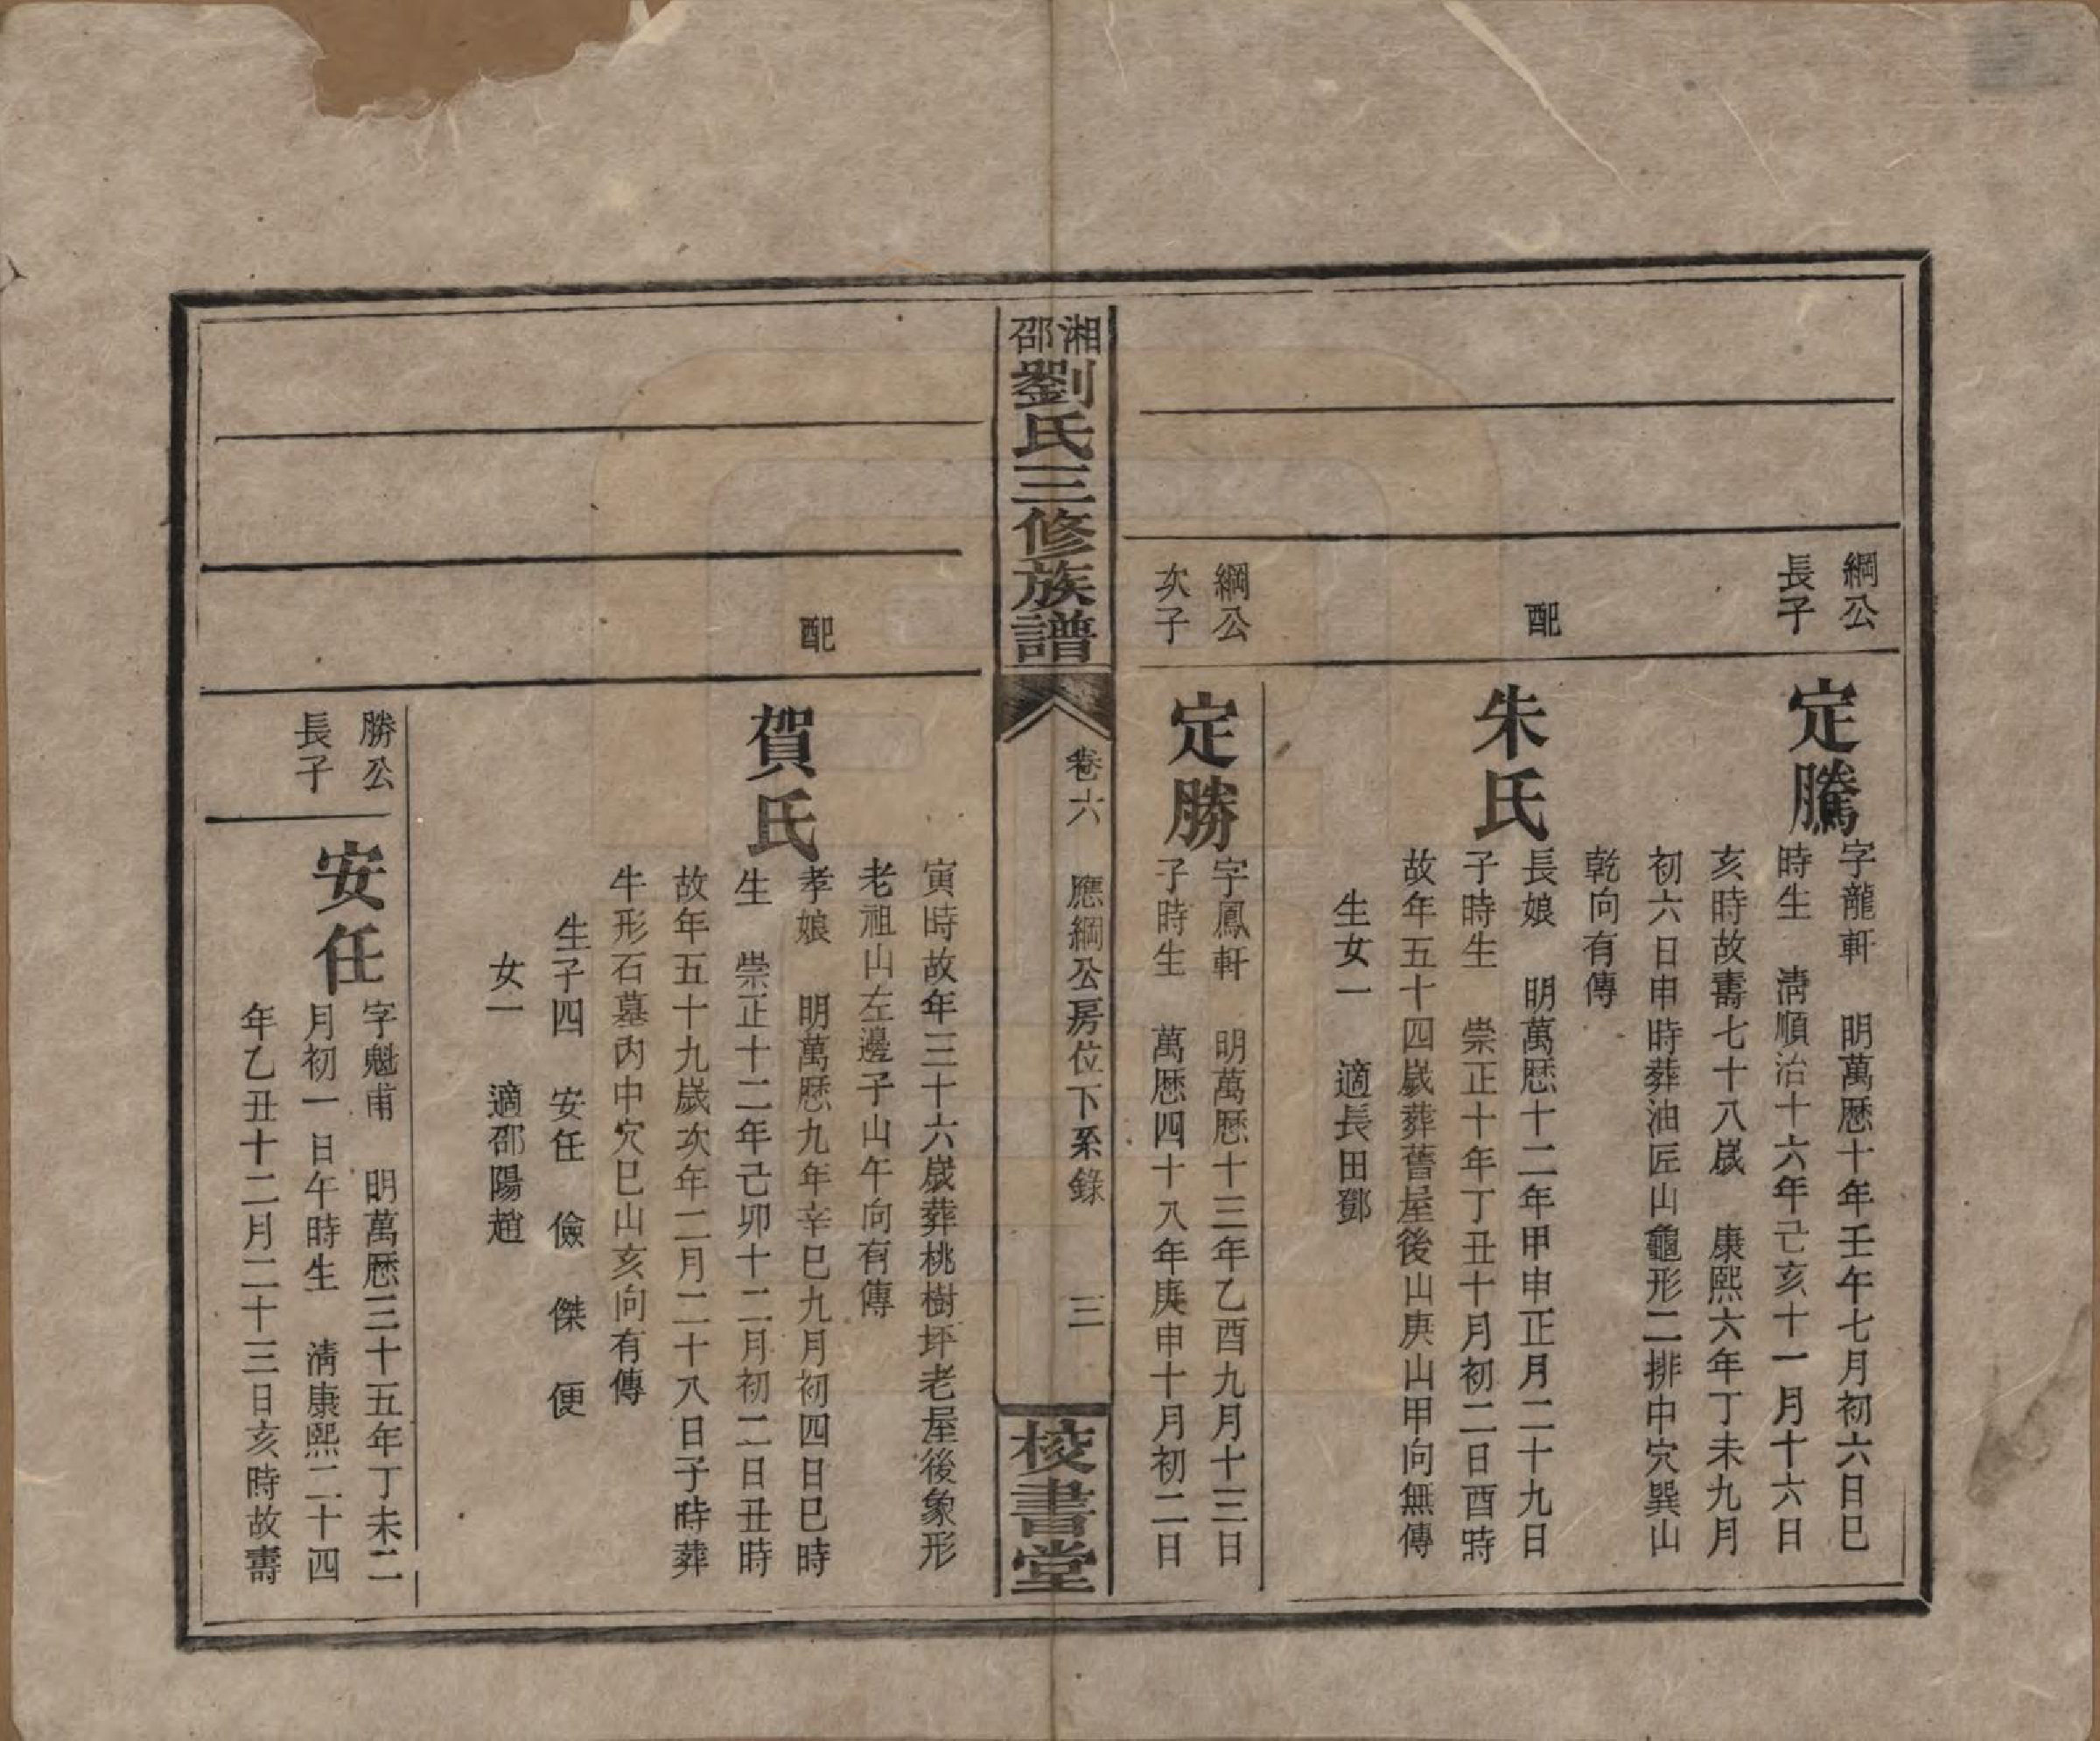 綱公
長子
定騰
字龍軒　明萬厯十年壬午七月初六日巳
時生　清順治十六年己亥十一月十六日
亥時故壽七十八歲　康熙六年丁未九月
初六日申時葬油匠山龜形二排中穴巽山
乾向有傳
配
朱氏
長娘　明萬厯十二年甲申正月二十九日
子時生　崇正十年丁丑十月初二日酉時
故年五十四歲葬舊屋後山庚山甲向無傳
生女一　適長田鄧
綱公
次子
定勝
字鳳軒　明萬厯十三年乙酉九月十三日
子時生　萬厯四十八年庚申十月初二日
湘邵劉氏三修族譜
卷六　應綱公房位下系錄　三
校書堂
寅時故年三十六歲葬桃樹坪老屋後象形
老祖山左邊子山午向有傳
配
賀氏
孝娘　明萬厯九年辛巳九月初四日巳時
生　崇正十二年己卯十二月初二日丑時
故年五十九歲次年二月二十八日子時葬
牛形石墓內中穴巳山亥向有傳
生子四　安任　儉　傑　便
女一　適邵陽趙
勝公
長子
安任
字魁甫　明萬厯三十五年丁未二
月初一日午時生　清康熙二十四
年乙丑十二月二十三日亥時故壽